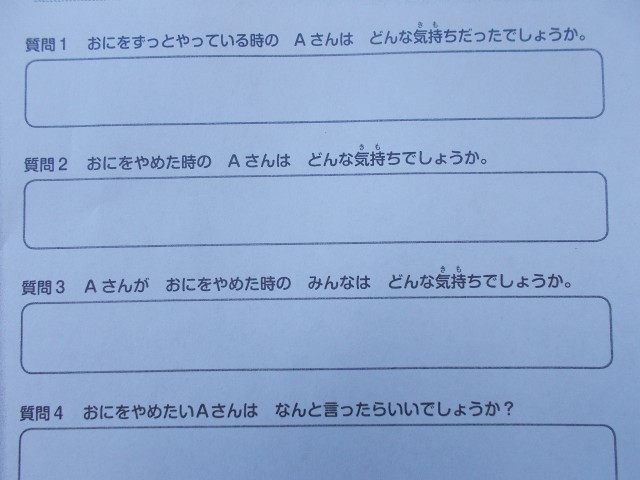 質問1　おにをずっとやっている時の　Aさんは　どんな気持ちだったでしょうか。
質問2　おにをやめた時の　Aさんは　どんな気持ちでしょうか。
質問3　Aさんが　おにをやめた時の　みんなは　どんな気持ちでしょうか。
質問4　おにをやめたいAさんは　なんと言ったらいいでしょうか？